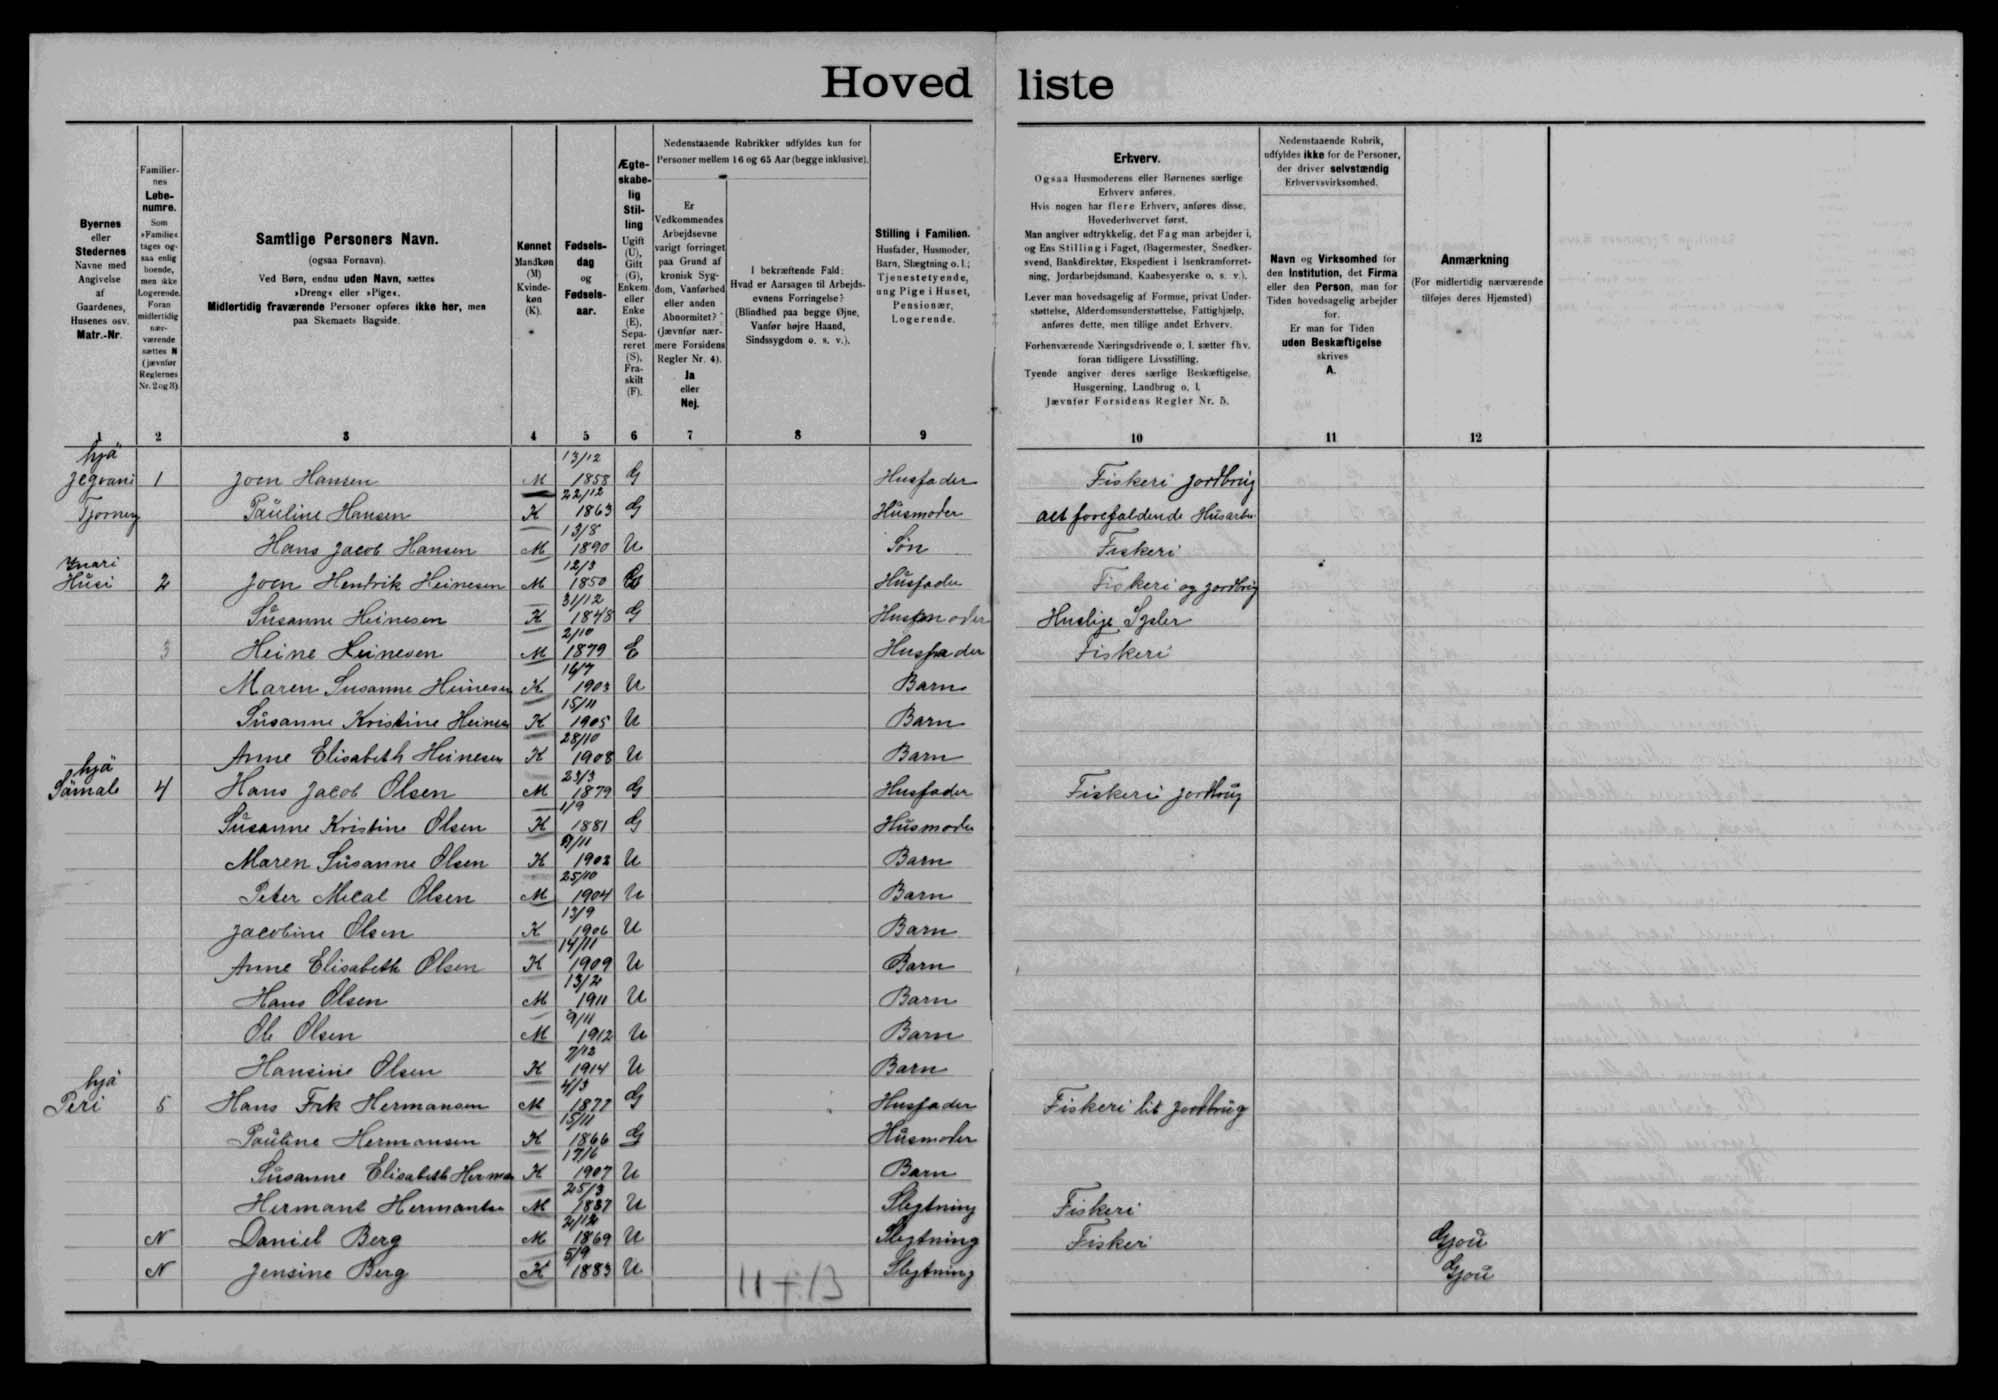 Hovedliste
Byernes
eller
Stedernes
Navne med
Angivelse
af
Gaardenes,
Husenes osv.
Matr.-Nr.
Familier-
nes
Løbe-
numre.
Som
»Familie«
tages og-
saa enlig
boende,
men ikke
Logerende.
Foran
midlertidig
nær-
værende
sættes N
(jævnfør
Reglernes
Nr. 2 og 3).
Samtlige Personers Navn.
(ogsaa Fornavn).
Ved Børn, endnu uden Navn, sættes
»Dreng« eller »Pige«.
Midlertidig fraværende Personer opføres ikke her, men
paa Skemaets Bagside.
Kønnet
Mandkøn
(M)
Kvinde-
køn
(K).
Fødsels-
dag
og
Fødsels-
aar.
Ægte-
skabe-
lig
Stil-
ling
Ugift
(U),
Gift
(G),
Enkem.
eller
Enke
(E),
Sepa-
reret
(S),
Fra-
skilt
(F).
Nedenstaaende Rubrikker udfyldes kun for
Personer mellem 16 og 65 Aar (begge inklusive).
Er
Vedkommendes
Arbejdsevne
varigt forringet
paa Grund af
kronisk Syg-
dom, Vanførhed
eller anden
Abnormitet?
(Jævnfør nær-
mere Forsidens
Regler Nr. 4).
Ja
eller
Nej.
I bekræftende Fald:
Hvad er Aarsagen til Arbejds-
evnens Forringelse?
(Blindhed paa begge Øjne,
Vanfør højre Haand,
Sindssygdom o. s. v.).
Stilling i Familien.
Husfader, Husmoder,
Barn, Slægtning o. l.;
Tjenestetyende,
ung Pige i Huset,
Pensionær,
Logerende.
Erhverv.
Ogsaa Husmoderens eller Børnenes særlige
Erhverv anføres.
Hvis nogen har flere Erhverv, anføres disse,
Hovederhvervet først.
Man angiver udtrykkelig, det Fag man arbejder i,
og Ens Stilling i Faget, (Bagermester, Snedker-
svend, Bankdirektør, Ekspedient i Isenkramforret-
ning, Jordarbejdsmand, Kaabesyerske o. s. v.).
Lever man hovedsagelig af Formue, privat Under-
støttelse, Alderdomsunderstøttelse, Fattighjælp,
anføres dette, men tillige andet Erhverv.
Forhenværende Næringsdrivende o. l. sætter fhv.
foran tidligere Livsstilling.
Tyende angiver deres særlige Beskæftigelse,
Husgerning, Landbrug o. l.
Jævnfør Forsidens Regler Nr. 5.
Nedenstaaende Rubrik,
udfyldes ikke for de Personer,
der driver selvstændig
Erhvervsvirksomhed.
Navn og Virksomhed for
den Institution, det Firma
eller den Person, man for
Tiden hovedsagelig arbejder
for.
Er man for Tiden
uden Beskæftigelse
skrives
A.
Anmærkning
(For midlertidig nærværende
tilføjes deres Hjemsted)
1 2 3 4 5 6 7 8 9 10 11 12
hjä 13/12
1 Joen Hansen M 1858 G Husfader Fiskeri Jordbrug
22/12
Pauline Hansen K 1863 G Husmoder alt forefaldende Husarbe
13/8
Hans Jacob Hansen M 1890 U Søn Fiskeri
12/3
Húsi 2 Joen Hendrik Heinesen M 1850 G Husfader Fiskeri og Jordbrug
31/12
Susanne Heinesen K 1848 G Husmoder Huslige Sysler
2/10
3 Heine Heinesen M 1879 E Husfader Fiskeri
16/7
Maren Susanne Heinesen K 1903 U Barn
15/11
Susanne Kristine Heinesen K 1905 U Barn
28/10
Anne Elisabeth Heinesen K 1908 U Barn
hjä 23/3
Sámal 4 Hans Jacob Olsen M 1879 G Husfader Fiskeri Jordbrug
1/9
Susanne Kristine Olsen K 1881 G Husmoder
9/11
Maren Susanne Olsen K 1902 U Barn
25/10
Peter Mical Olsen M 1904 U Barn
13/9
Jacobine Olsen K 1906 U Barn
14/11
Anne Elisabeth Olsen K 1909 U Barn
13/2
Hans Olsen M 1911 U Barn
9/11
Ole Olsen M 1912 U Barn
7/12
Hansine Olsen K 1914 U Barn
hjá 4/3
Peri 5 Hans Frk Hermansen M 1877 G Husfader Fiskeri lit Jordbrug
15/11
Pauline Hermansen K 1866 G Husmoder
17/6
Susanne Elisabeth Herman K 1907 U Barn
25/3
Hermant Hermansen M 1837 U Slegtning Fiskeri
2/12
N Daniel Berg M 1869 U Slegtning Fisker Gjou
5/9
N Jensine Berg K 1883 U Slegtning Gjou
11 + 13